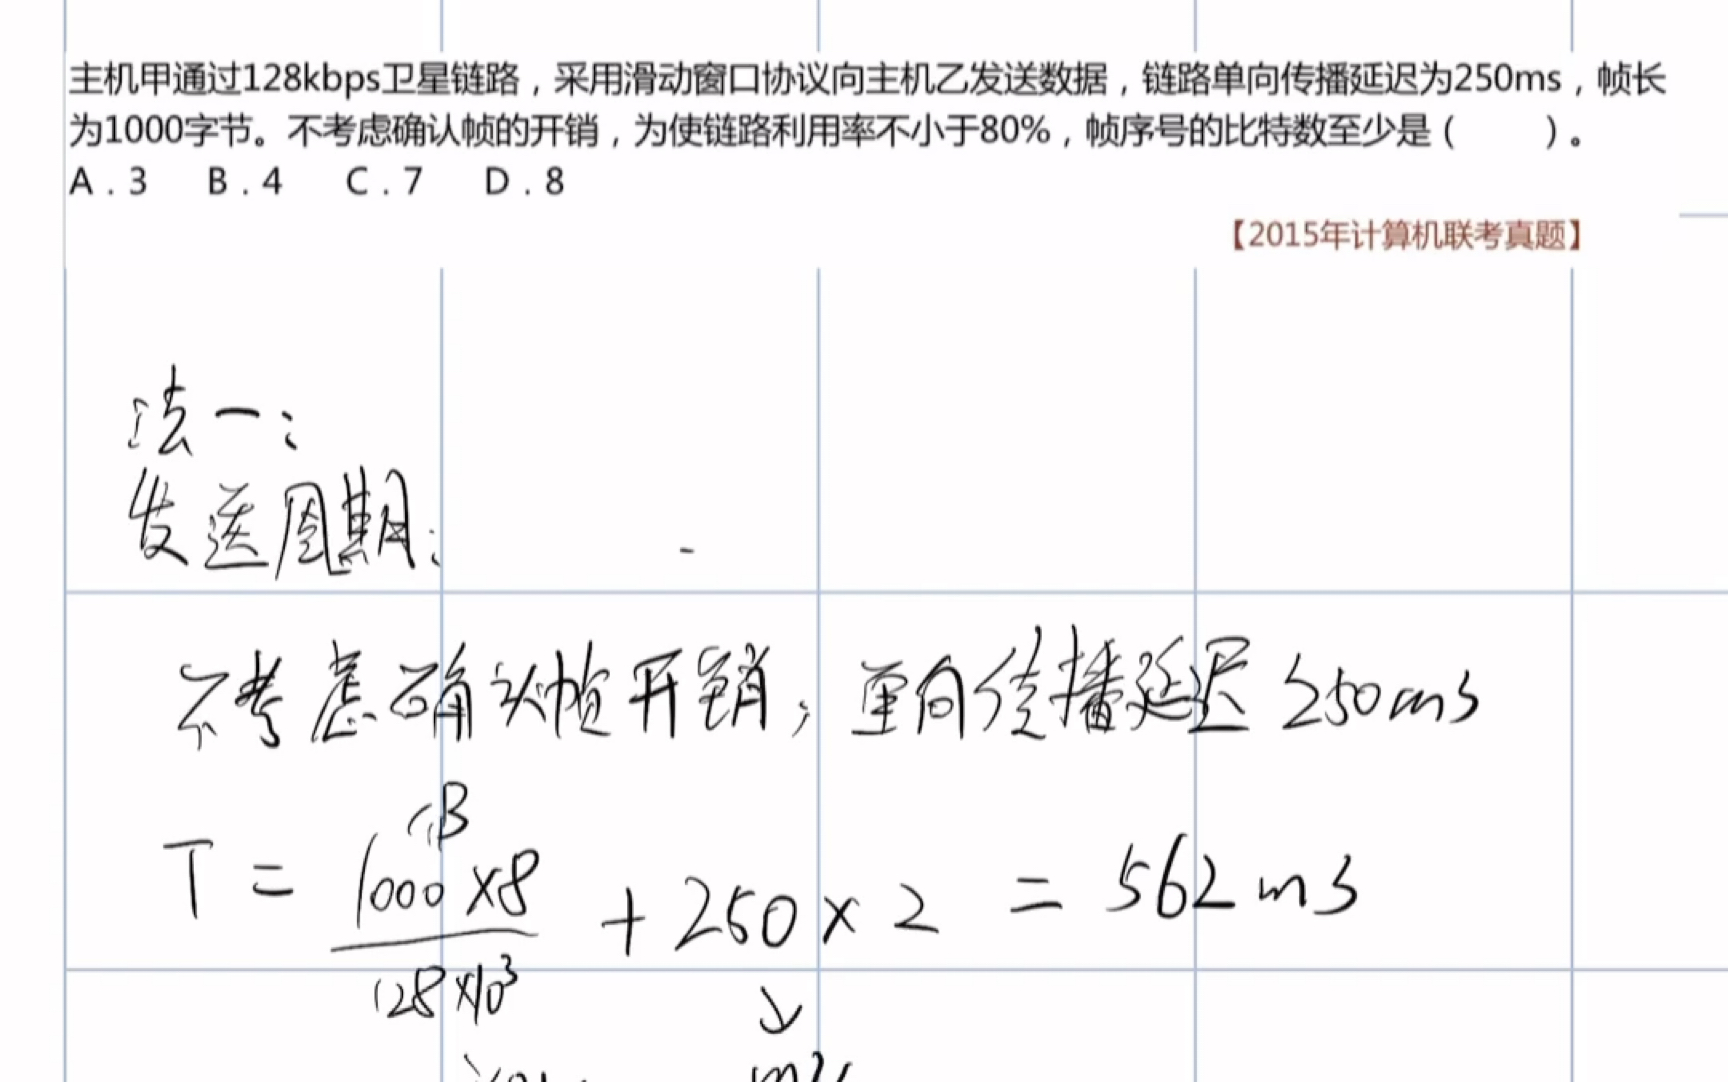 主机甲通过128kbps卫星链路，采用滑动窗口协议向主机乙发送数据，链路单向传播延迟为250ms，帧长
为1000字节。不考虑确认帧的开销，为使链路利用率不小于80%，帧序号的比特数至少是（　　）。
A．3　B．4　C．7　D．8
【2015年计算机联考真题】
法一：
发送周期：
不考虑确认帧开销，单向传播延迟250ms
1B
T = 1000×8 / 128×10³ + 250×2 = 562ms